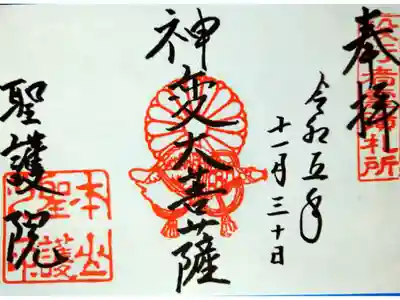 奉拝
令和五年
十一月三十日
神変大菩薩
聖護院
本山
聖護